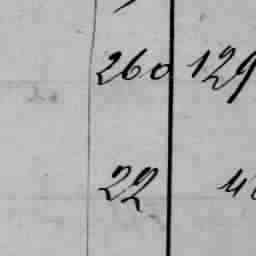 260 129
22